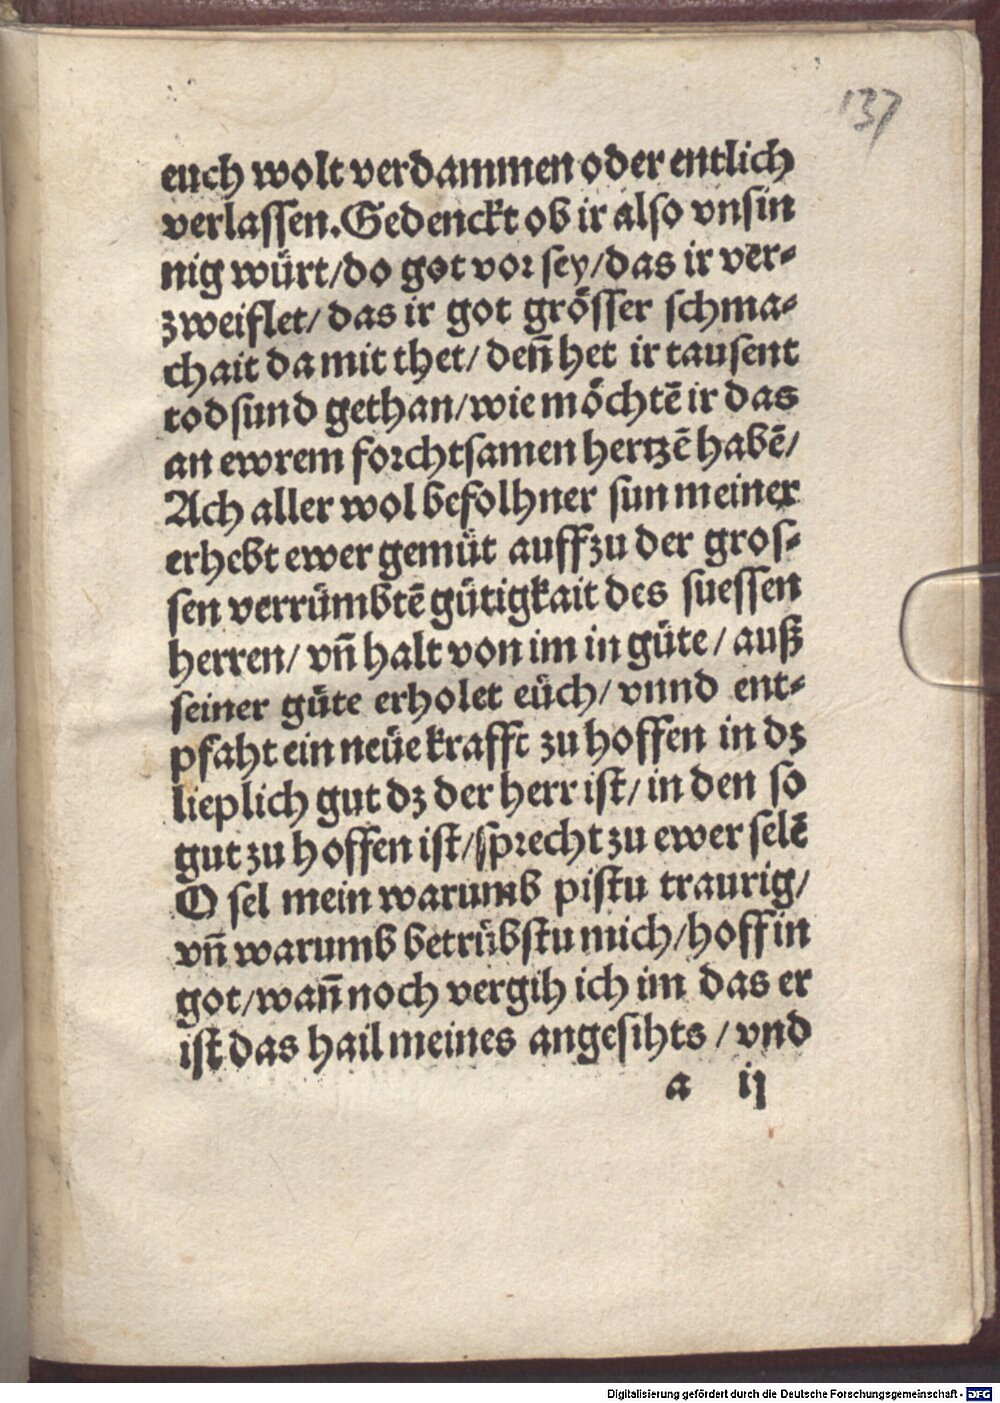 137
euch wolt verdammen oder entlich
verlassen. Gedenckt ob ir also vnsin
nig würt/do got vor sey/das ir ver-
zweiflet/ das ir got grösser schma-
chait da mit thet/ deñ het ir tausent
tod sund gethan/wie möchtē ir das
an ewrem forchtsamen hertzē habē/
Ach aller wol befolhner sun meiner
erhebt ewer gemüt auff zu der gros-
sen verrümbtē gütigkait des suessen
herren/ vñ halt von im in güte/ auß
seiner güte erholet eüch/ vnnd ent-
pfaht ein neüe krafft zu hoffen in dz
lieplich gut dz der herr ist/ in den so
gut zu hoffen ist/sprecht zu ewer selē
O sel mein warumb pistu traurig/
vñ warumb betrübstu mich/hoff in
got/wañ noch vergih ich im das er
ist das hail meines angesihts / vnd
a ij
Digitalisierung gefördert durch die Deutsche Forschungsgemeinschaft - DFG